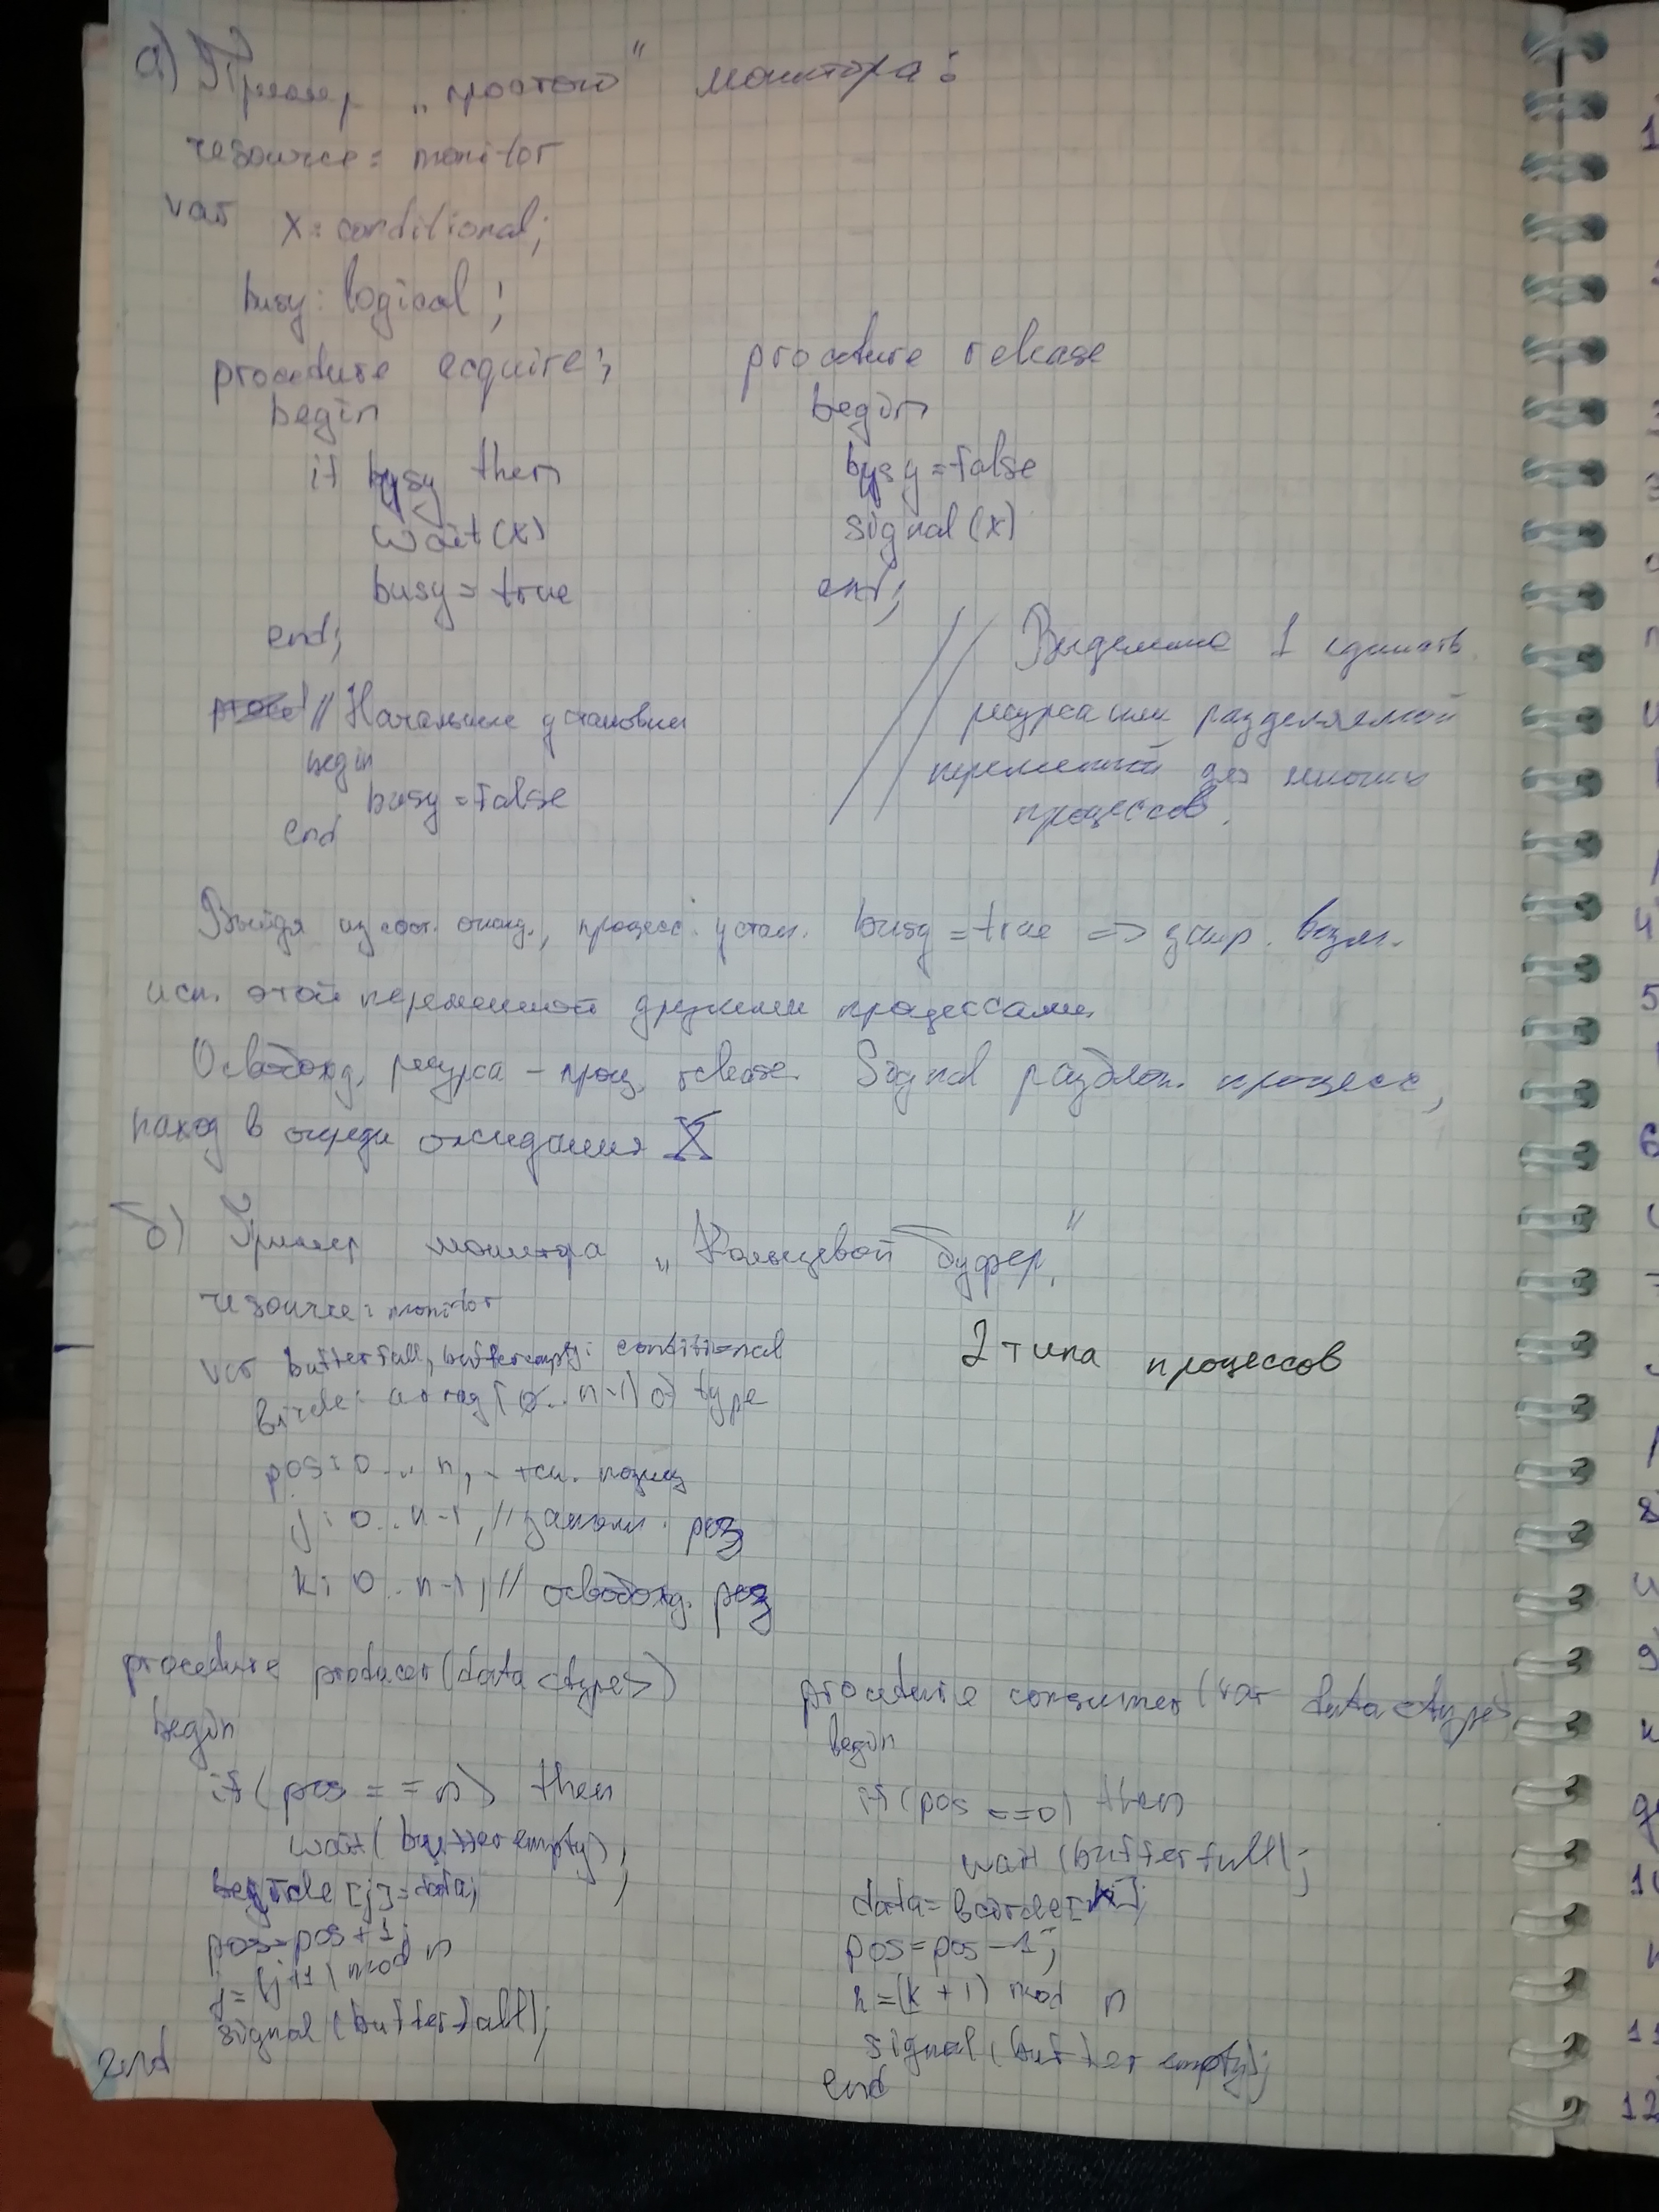 а) Пример „простого" монитора:
resource: monitor
var x: conditional;
busy: logical;
procedure acquire;
begin
if busy then
wait(x)
busy = true
end;
procedure release
begin
busy = false
signal(x)
end;
// Начальные установки
begin
busy = false
end
// Выделение 1 единств.
ресурса или разделяемой
переменной для многих
процессов.
Выйдя из сост. ожид., процесс устан. busy = true => блокир. возм.
исп. этой переменной другими процессами.
Освобожд. ресурса – проц. release. Signal разблок. процесс,
наход в очереди ожидания X
б) Пример монитора „Кольцевой буфер"
resource: monitor
var bufferfull, bufferempty: conditional
array [0..n-1] of type
pos: 0..n, - тек. позиц
j: 0..n-1, // заполн. poз
k: 0..n-1, // освобожд. poз
2 типа процессов
procedure producer (data <type>)
begin
if (pos == n) then
wait(bufferempty);
[j] = data;
pos = pos + 1;
j = (j+1) mod n
signal (bufferfull);
end
procedure consumer (var data <type>)
begin
if (pos == 0) then
wait (bufferfull);
data = [k];
pos = pos - 1;
k = (k + 1) mod n
signal (bufferempty);
end